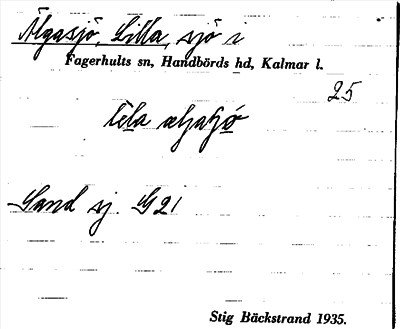 Älgasjö, Lilla, sjö i
Fagerhults sn, Handbörds hd, Kalmar l.
25
lela
Sand sj. G21
Stig Bäckstrand 1935.